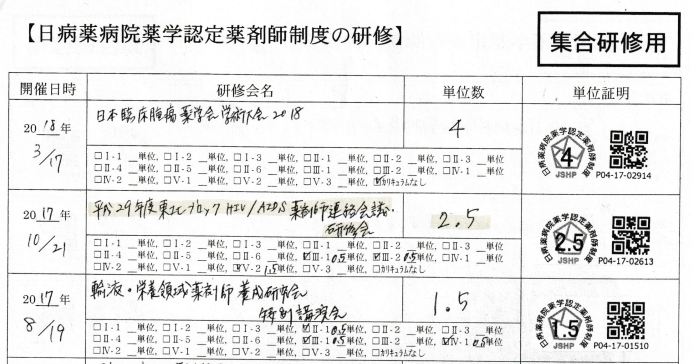 【日病薬病院薬学認定薬剤師制度の研修】
集合研修用
開催日時 研修会名 単位数 単位証明
2018年 3/17
日本臨床腫瘍薬学会学術大会2018
4
□Ⅰ-1 __単位, □Ⅰ-2 __単位, □Ⅰ-3 __単位, □Ⅱ-1 __単位, □Ⅱ-2 __単位, □Ⅱ-3 __単位
□Ⅱ-4 __単位, □Ⅱ-5 __単位, □Ⅱ-6 __単位, □Ⅲ-1 __単位, □Ⅲ-2 __単位, □Ⅳ-1 __単位
□Ⅳ-2 __単位, □Ⅴ-1 __単位, □Ⅴ-2 __単位, □Ⅴ-3 __単位, ☑カリキュラムなし
日病薬病院薬学認定薬剤師制度
4
JSHP
P04-17-02914
2017年 10/21
平成29年度東北ブロックHIV/AIDS薬剤師連絡会議・
研修会
2.5
□Ⅰ-1 __単位, □Ⅰ-2 __単位, □Ⅰ-3 __単位, □Ⅱ-1 __単位, □Ⅱ-2 __単位, □Ⅱ-3 __単位
□Ⅱ-4 __単位, □Ⅱ-5 __単位, □Ⅱ-6 __単位, ☑Ⅲ-1 0.5単位, ☑Ⅲ-2 0.5単位, □Ⅳ-1 __単位
□Ⅳ-2 __単位, □Ⅴ-1 __単位, ☑Ⅴ-2 1.5単位, □Ⅴ-3 __単位, □カリキュラムなし
日病薬病院薬学認定薬剤師制度
2.5
JSHP
P04-17-02613
2017年 8/19
輸液・栄養領域薬剤師養成研究会
特別講演会
1.5
□Ⅰ-1 __単位, □Ⅰ-2 __単位, □Ⅰ-3 __単位, ☑Ⅱ-1 0.5単位, □Ⅱ-2 __単位, □Ⅱ-3 __単位
□Ⅱ-4 __単位, □Ⅱ-5 __単位, □Ⅱ-6 __単位, ☑Ⅲ-1 0.5単位, □Ⅲ-2 __単位, ☑Ⅳ-1 0.5単位
□Ⅳ-2 __単位, □Ⅴ-1 __単位, □Ⅴ-2 __単位, □Ⅴ-3 __単位, □カリキュラムなし
日病薬病院薬学認定薬剤師制度
1.5
JSHP
P04-17-01510